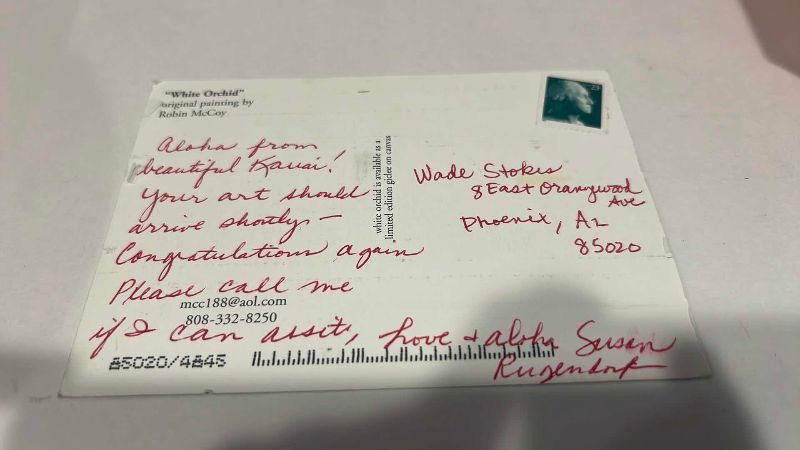 "White Orchid"
original painting by
Robin McCoy
Aloha from
beautiful Kauai!
Your art should
arrive shortly —
Congratulations again
Please call me
mcc188@aol.com
808-332-8250
if I can assit, Love + aloha Susan
85020/4845
white orchid is available as a
limited edition giclee on canvas
23
Wade Stokes
8 East Orangewood
Ave
Phoenix, Az
85020